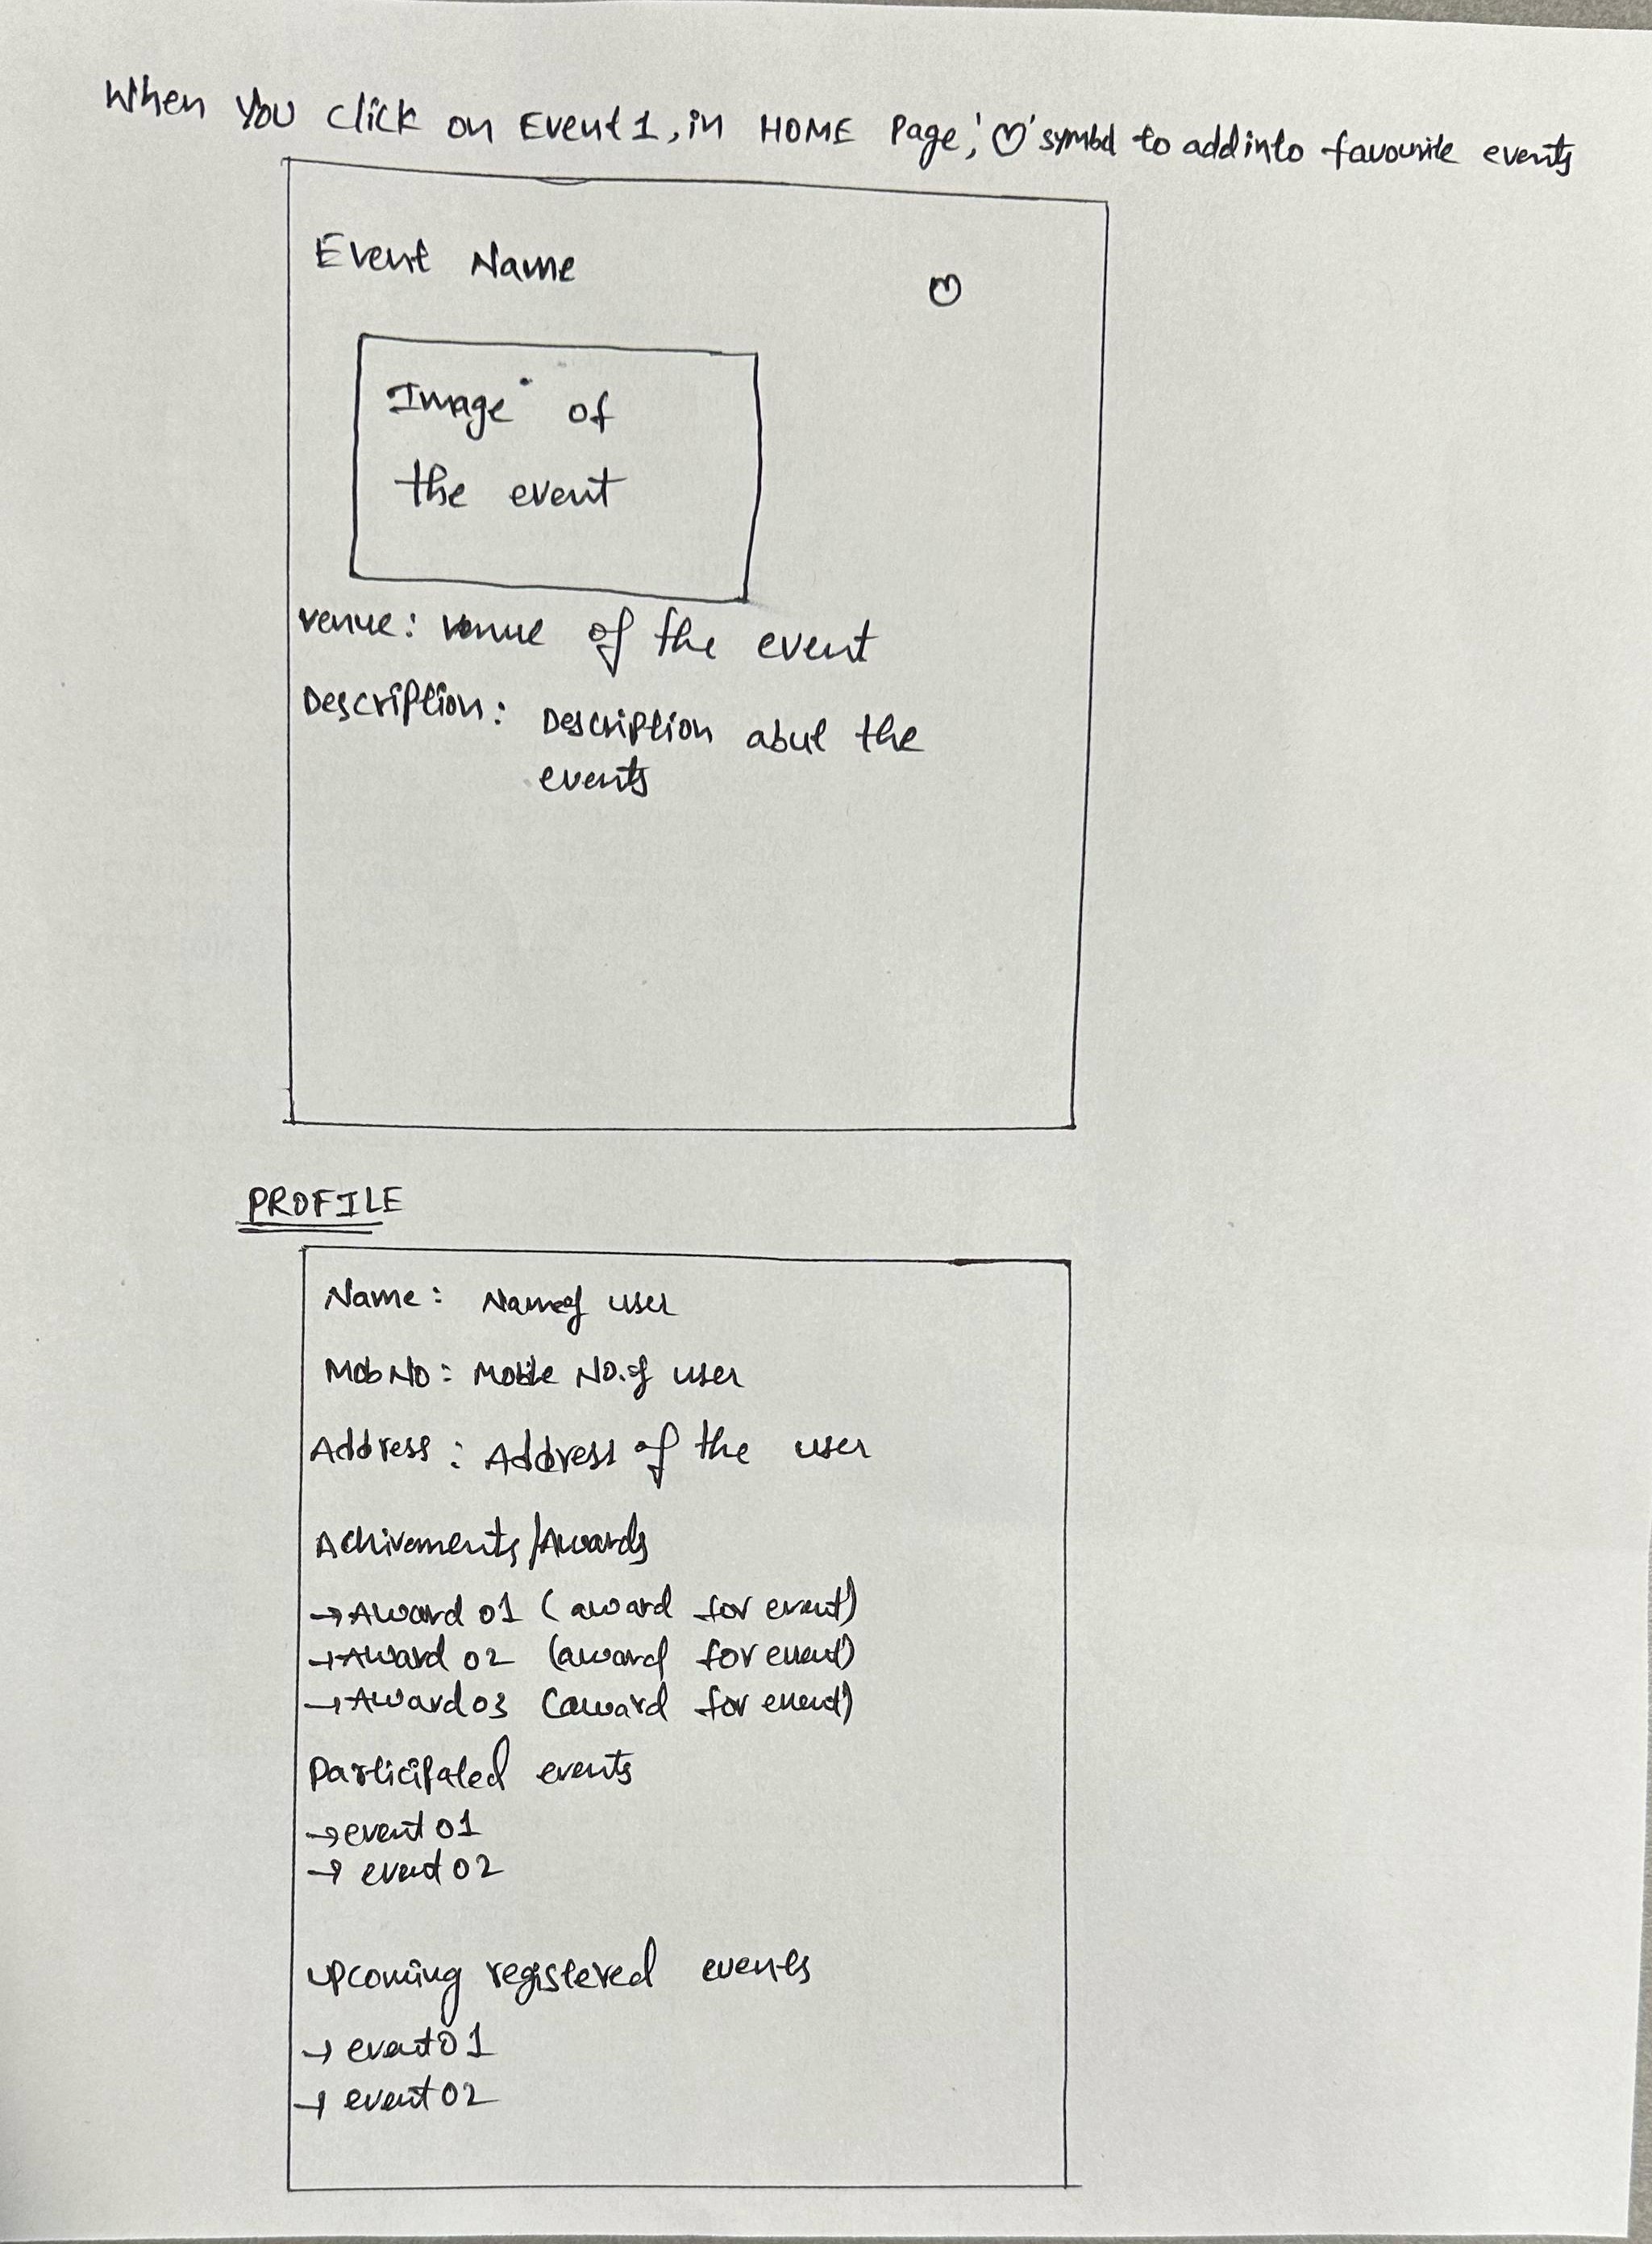 When You click on Event 1, in HOME Page, '♡' symbol to add into favourite events
Event Name ♡
Image of
the event
venue: venue of the event
Description: Description abut the
events
PROFILE
Name: Name of user
Mob No: Mobile No. of user
Address: Address of the user
Achivements/Awards
→ Award 01 (award for event)
→ Award 02 (award for event)
→ Award 03 (award for event)
Participated events
→ event 01
→ event 02
upcoming registered events
→ event 01
→ event 02